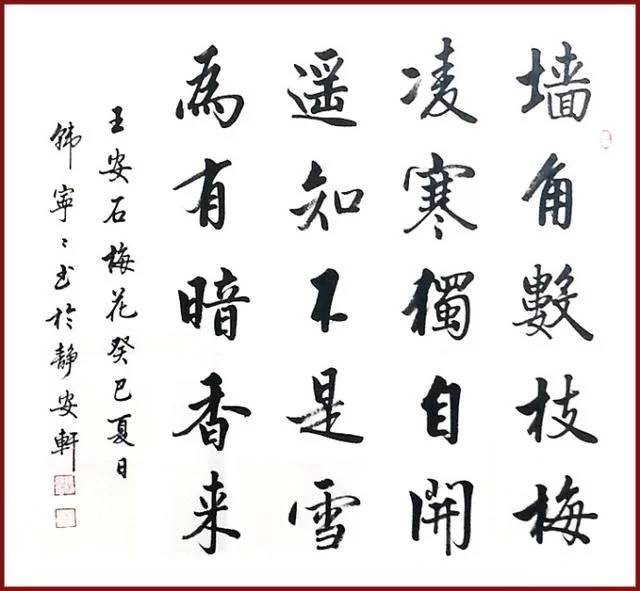 墙角數枝梅
凌寒獨自開
遥知不是雪
為有暗香来
王安石梅花癸巳夏日
韩寧〻书於静安軒